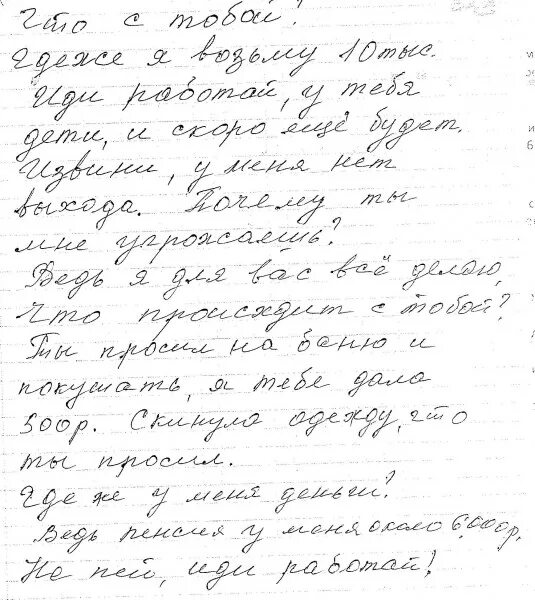 Что с тобой?
Где же я возьму 10 тыс.
Иди работай, у тебя
дети, и скоро ещё будет.
Извини, у меня нет
выхода. Почему ты
мне угрожаешь?
Ведь я для вас всё делаю,
Что происходит с тобой?
Ты просил на баню и
покушать, я тебе дала
500р. Скинула одежду, что
ты просил.
Где же у меня деньги?
Ведь пенсия у меня около 6000р.
Не пей, иди работай!